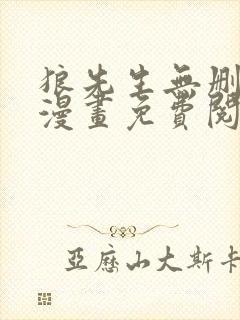 狼先生無刪
漫畫免費閱
亞歷山大斯卡